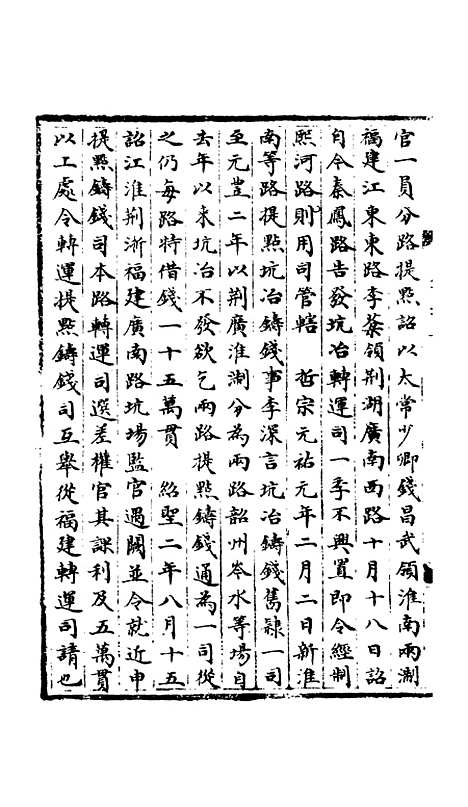 官一員分路提㸃詔以太常少卿錢昌武領淮南兩淛
福建江東東路李棻領荆湖廣南西路十月十八日詔
自今秦鳳路告發坑冶轉運司一季不興置即令經制
熙河路則用司管轄　哲宗元祐元年二月二日新淮
南等路提㸃坑冶鑄錢事李深言坑冶鑄錢舊隷一司
至元豊二年以荆廣淮淛分為兩路韶州岑水等塲自
去年以来坑冶不發欲乞兩路提㸃鑄錢通為一司從
之仍每路特借錢一十五萬貫　紹聖二年八月十五
詔江淮荆浙福建廣南路坑塲監官遇闕並令就近申
提㸃鑄錢司本路轉運司選差權官其課利及五萬貫
以上處令轉運提㸃鑄錢司互舉從福建轉運司請也